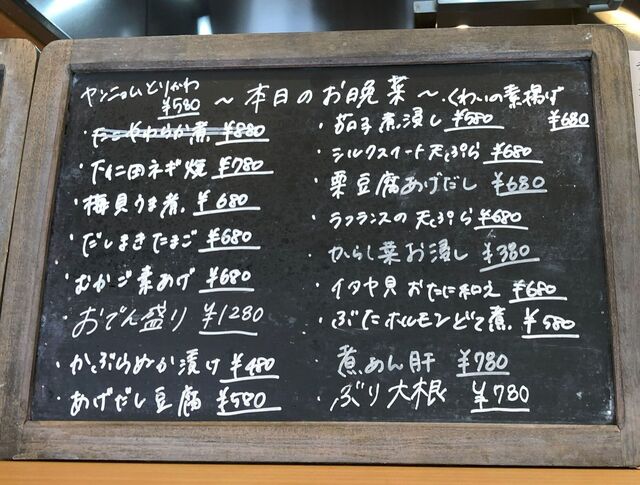 ヤンニョムとりかわ
¥580
～本日のお晩菜～
・くわいの素揚げ
¥680
・たこやわらか煮 ¥880
下仁田ネギ焼 ¥780
・梅貝うま煮 ¥680
・だしまきたまご ¥680
・むかご素あげ ¥680
・おでん盛り ¥1280
・かぶらぬか漬け ¥480
・あげだし豆腐 ¥580
・茄子煮浸し ¥580
・シルクスイート天ぷら ¥680
・栗豆腐あげだし ¥680
・ラフランスの天ぷら ¥680
・からし菜お浸し ¥380
・イタヤ貝おたに和え ¥680
・ぶたホルモンどて煮 ¥580
・煮あん肝 ¥780
・ぶり大根 ¥780